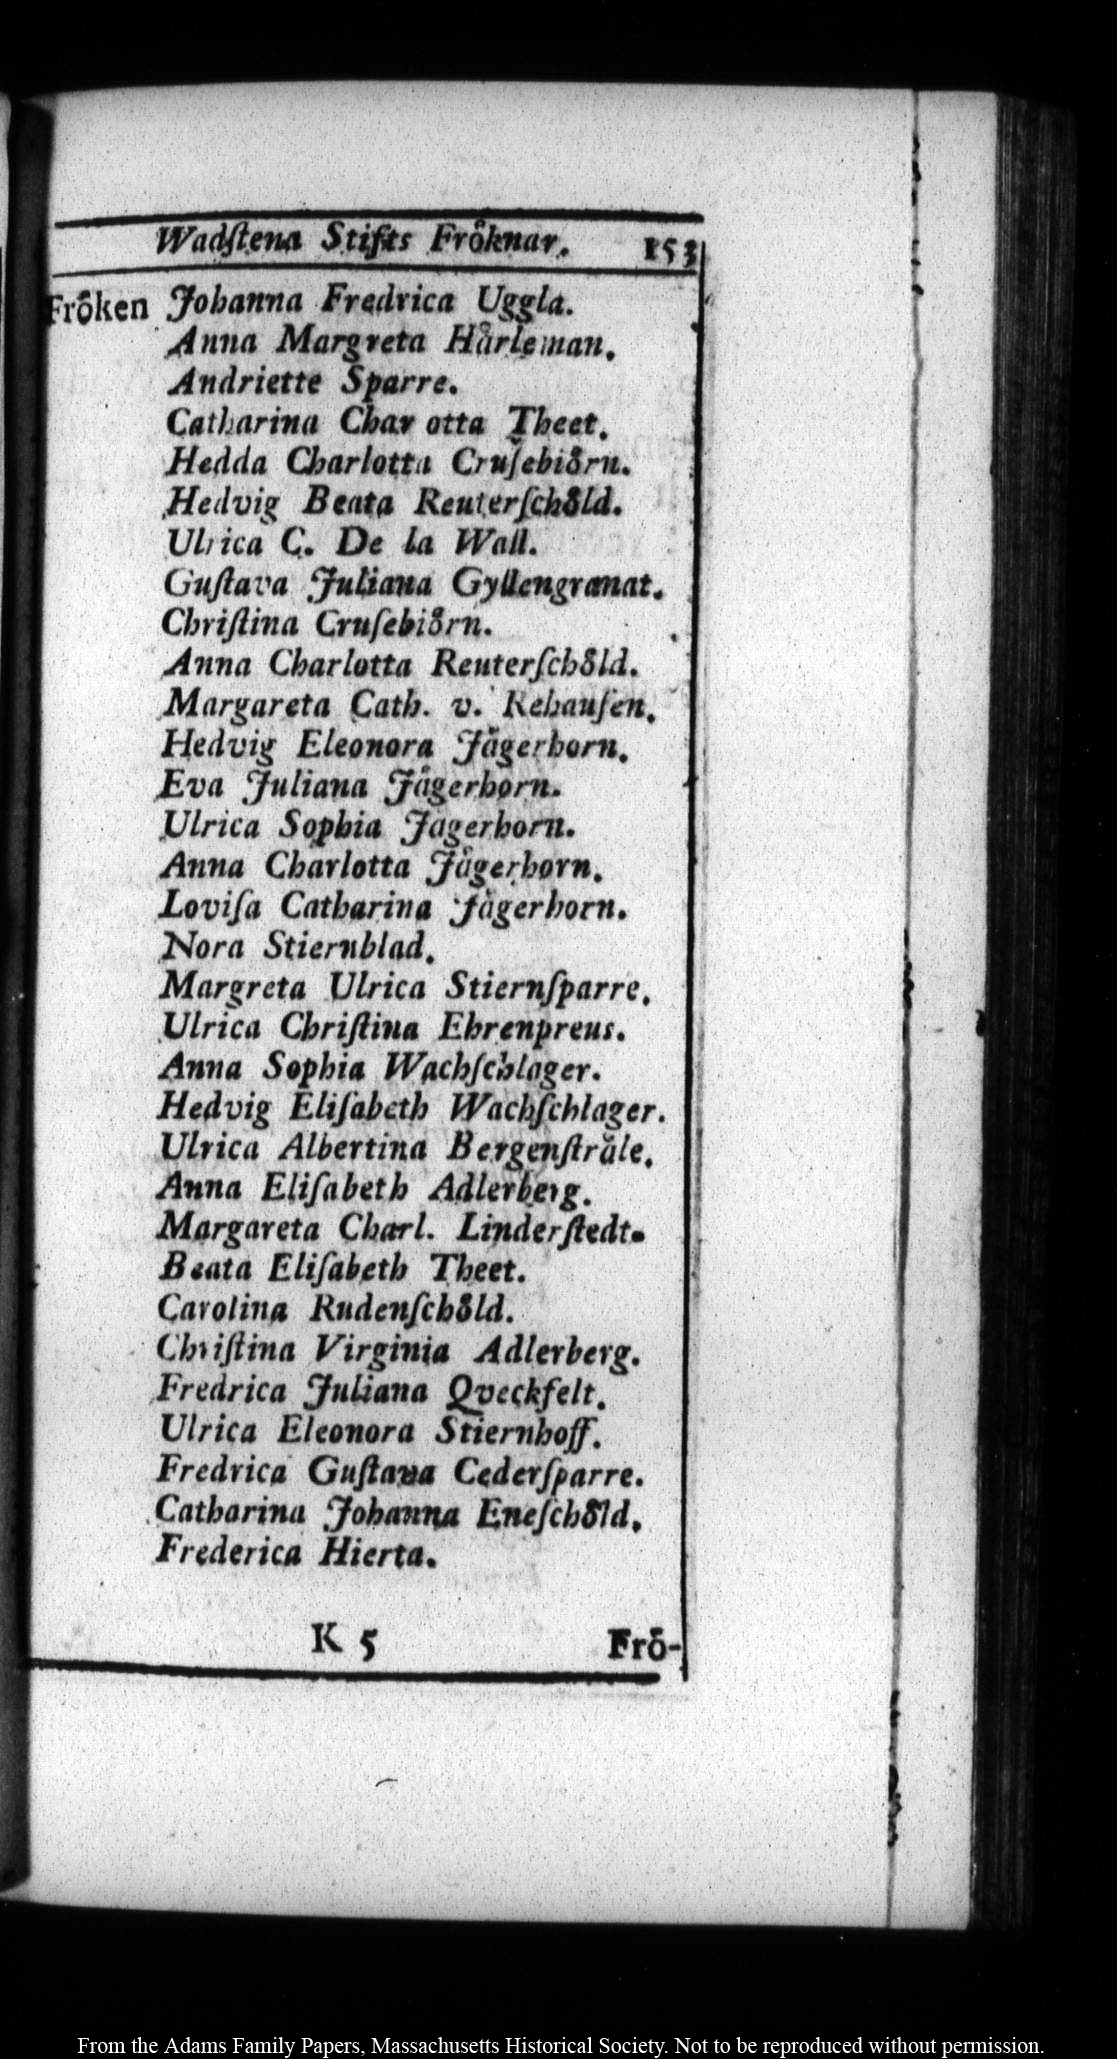 Wadſtena Stifts Frôknar. 153
Frôken Johanna Fredrica Uggla.
Anna Margreta Hårleman.
Andriette Sparre.
Catharina Char otta Theet.
Hedda Charlotta Cruſebiôrn.
Hedvig Beata Reuterſchôld.
Ulrica C. De la Wall.
Guſtava Juliana Gyllengranat.
Chriſtina Cruſebiôrn.
Anna Charlotta Reuterſchôld.
Margareta Cath. v. Rehauſen.
Hedvig Eleonora Jågerhorn.
Eva Juliana Jågerhorn.
Ulrica Sophia Jagerhorn.
Anna Charlotta Jågerhorn.
Loviſa Catharina Jågerhorn.
Nora Stiernblad.
Margreta Ulrica Stiernſparre.
Ulrica Chriſtina Ehrenpreus.
Anna Sophia Wachſchlager.
Hedvig Eliſabeth Wachſchlager.
Ulrica Albertina Bergenſtråle.
Anna Eliſabeth Adlerberg.
Margareta Charl. Linderſtedt.
Beata Eliſabeth Theet.
Carolina Rudenſchôld.
Chriſtina Virginia Adlerberg.
Fredrica Juliana Qveckfelt.
Ulrica Eleonora Stiernhoff.
Fredrica Guſtava Cederſparre.
Catharina Johanna Eneſchôld.
Frederica Hierta.
K 5 Frô-
From the Adams Family Papers, Massachusetts Historical Society. Not to be reproduced without permission.